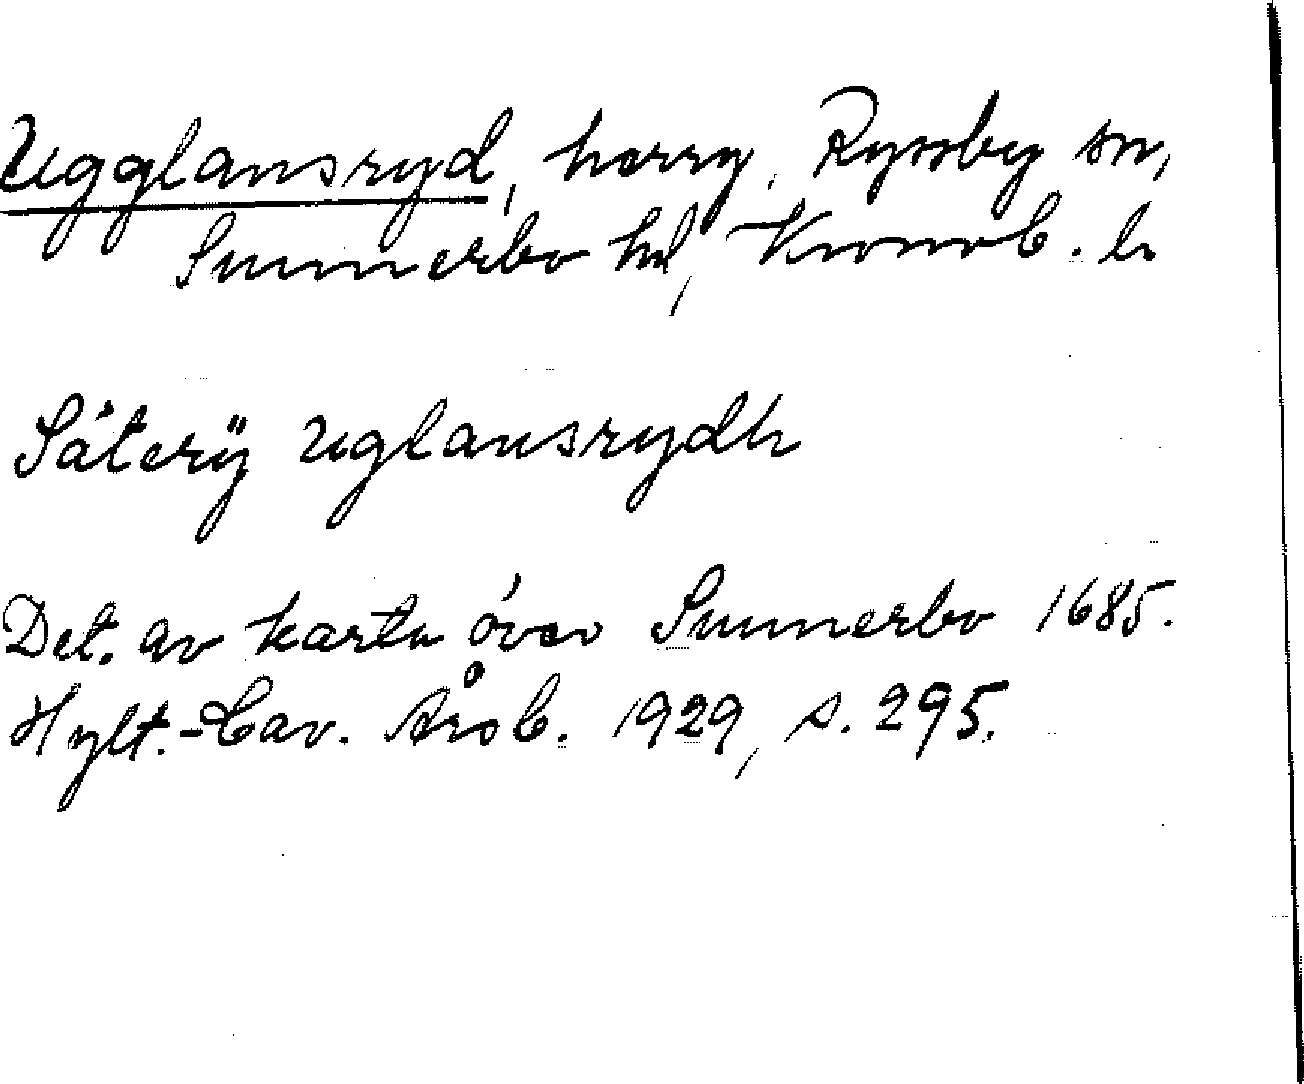 Ugglansryd, herrg. Ryssby sn,
Sunnerbo hd, Kronob. l.
Säterÿ Uglansrydh
Det. av karta över Sunnerbo 1685.
Hylt.-Cav. Årsb. 1929, s. 295.